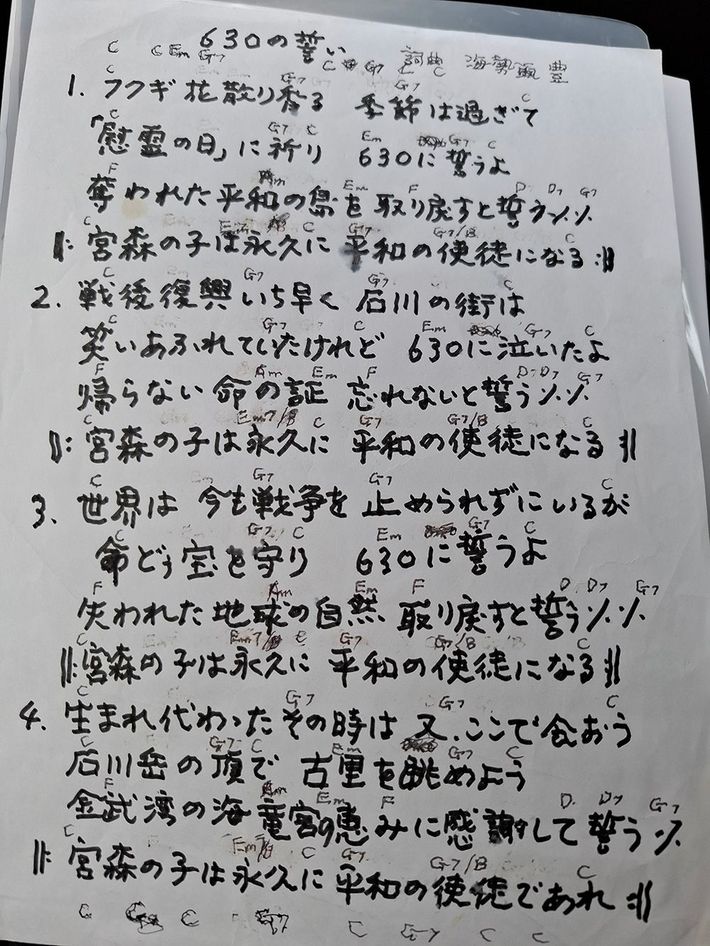 630の誓い
C C Em G7 C G7 C C 詞曲 海勢頭 豊
C G7 G7 C
1. フクギ花散り香る 季節は過ぎて
C G7 C Em G7 C
「慰霊の日」に祈り 630に誓うよ
F Am Em F D D7 G7
奪われた平和の島を 取り戻すと誓う〱〱
C G7 G7/B C
𝄆 宮森の子は永久に 平和の使徒になる 𝄇
C G7 G7 C
2. 戦後復興いち早く 石川の街は
C G7 C Em G7 C
笑いあふれていたけれど 630に泣いたよ
F Am Em F D D7 G7
帰らない命の証 忘れないと誓う〱〱
C Em7/B C G7 G7/B C
𝄆 宮森の子は永久に 平和の使徒になる 𝄇
C G7 G7 C
3. 世界は今も戦争を 止められずにいるが
C G7 C Em G7 C
命どぅ宝を守り 630に誓うよ
F Am Em F D D7 G7
失われた地球の自然 取り戻すと誓う〱〱
C Em7/B C G7 G7/B C
𝄆 宮森の子は永久に 平和の使徒になる 𝄇
C G7 G7 C
4. 生まれ代わったその時は 又、ここで会おう
C G7 C Em G7 C
石川岳の頂で 古里を眺めよう
F Am Em F D D7 G7
金武湾の海 竜宮の恵みに感謝して誓う〱
C Em7/B C G7 G7/B C
𝄆 宮森の子は永久に 平和の使徒であれ 𝄇
C C G7 C G7 C C